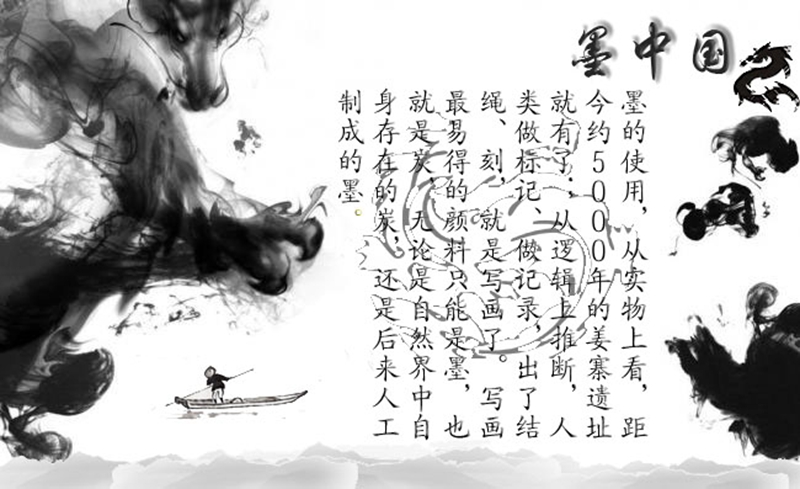 墨中国
墨的使用，从实物上看，距
今约5000年的姜寨遗址
就有了；从逻辑上推断，人
类做标记、做记录，出了结
绳、刻，就是写画了。写画
最易得的颜料只能是墨，也
就是炭，无论是自然界中自
身存在的炭，还是后来人工
制成的墨。